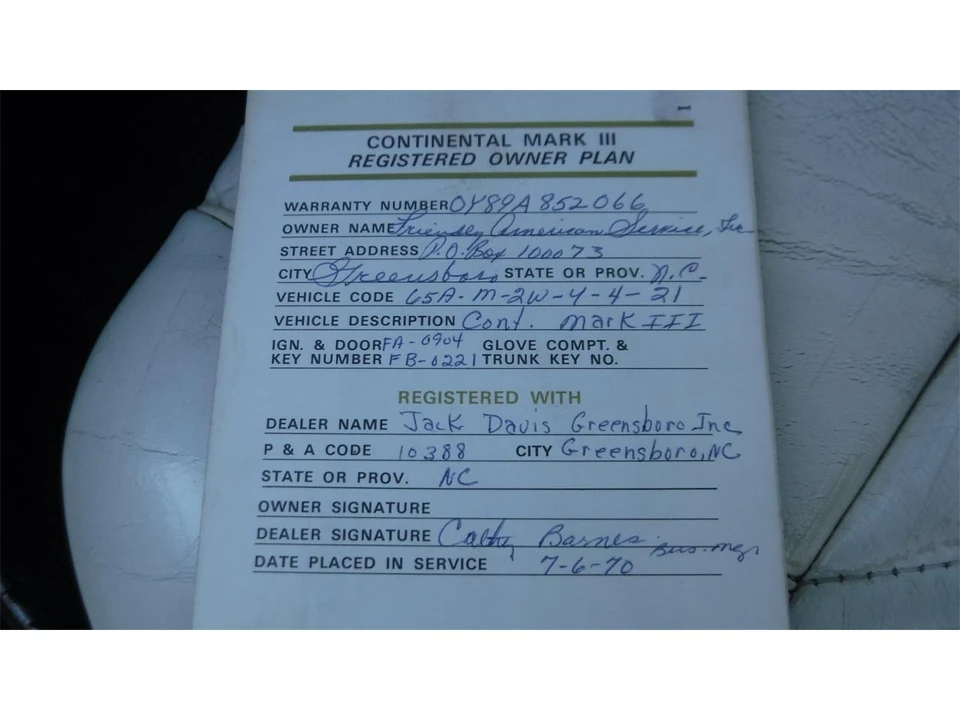 1
CONTINENTAL MARK III
REGISTERED OWNER PLAN
WARRANTY NUMBER 0Y89A852066
OWNER NAME Friendly American Service, Inc
STREET ADDRESS P.O. Box 100073
CITY Greensboro STATE OR PROV. N.C.
VEHICLE CODE 65A-M-2W-4-4-21
VEHICLE DESCRIPTION Cont. Mark III
IGN. & DOOR FA-0904 GLOVE COMPT. &
KEY NUMBER FB-0221 TRUNK KEY NO.
REGISTERED WITH
DEALER NAME Jack Davis Greensboro Inc
P & A CODE 10388 CITY Greensboro, NC
STATE OR PROV. NC
OWNER SIGNATURE
DEALER SIGNATURE Cathy Barnes Bus. Mgr
DATE PLACED IN SERVICE 7-6-70